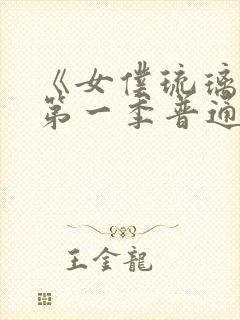 《女僕琉璃
第一季普通
王金龍